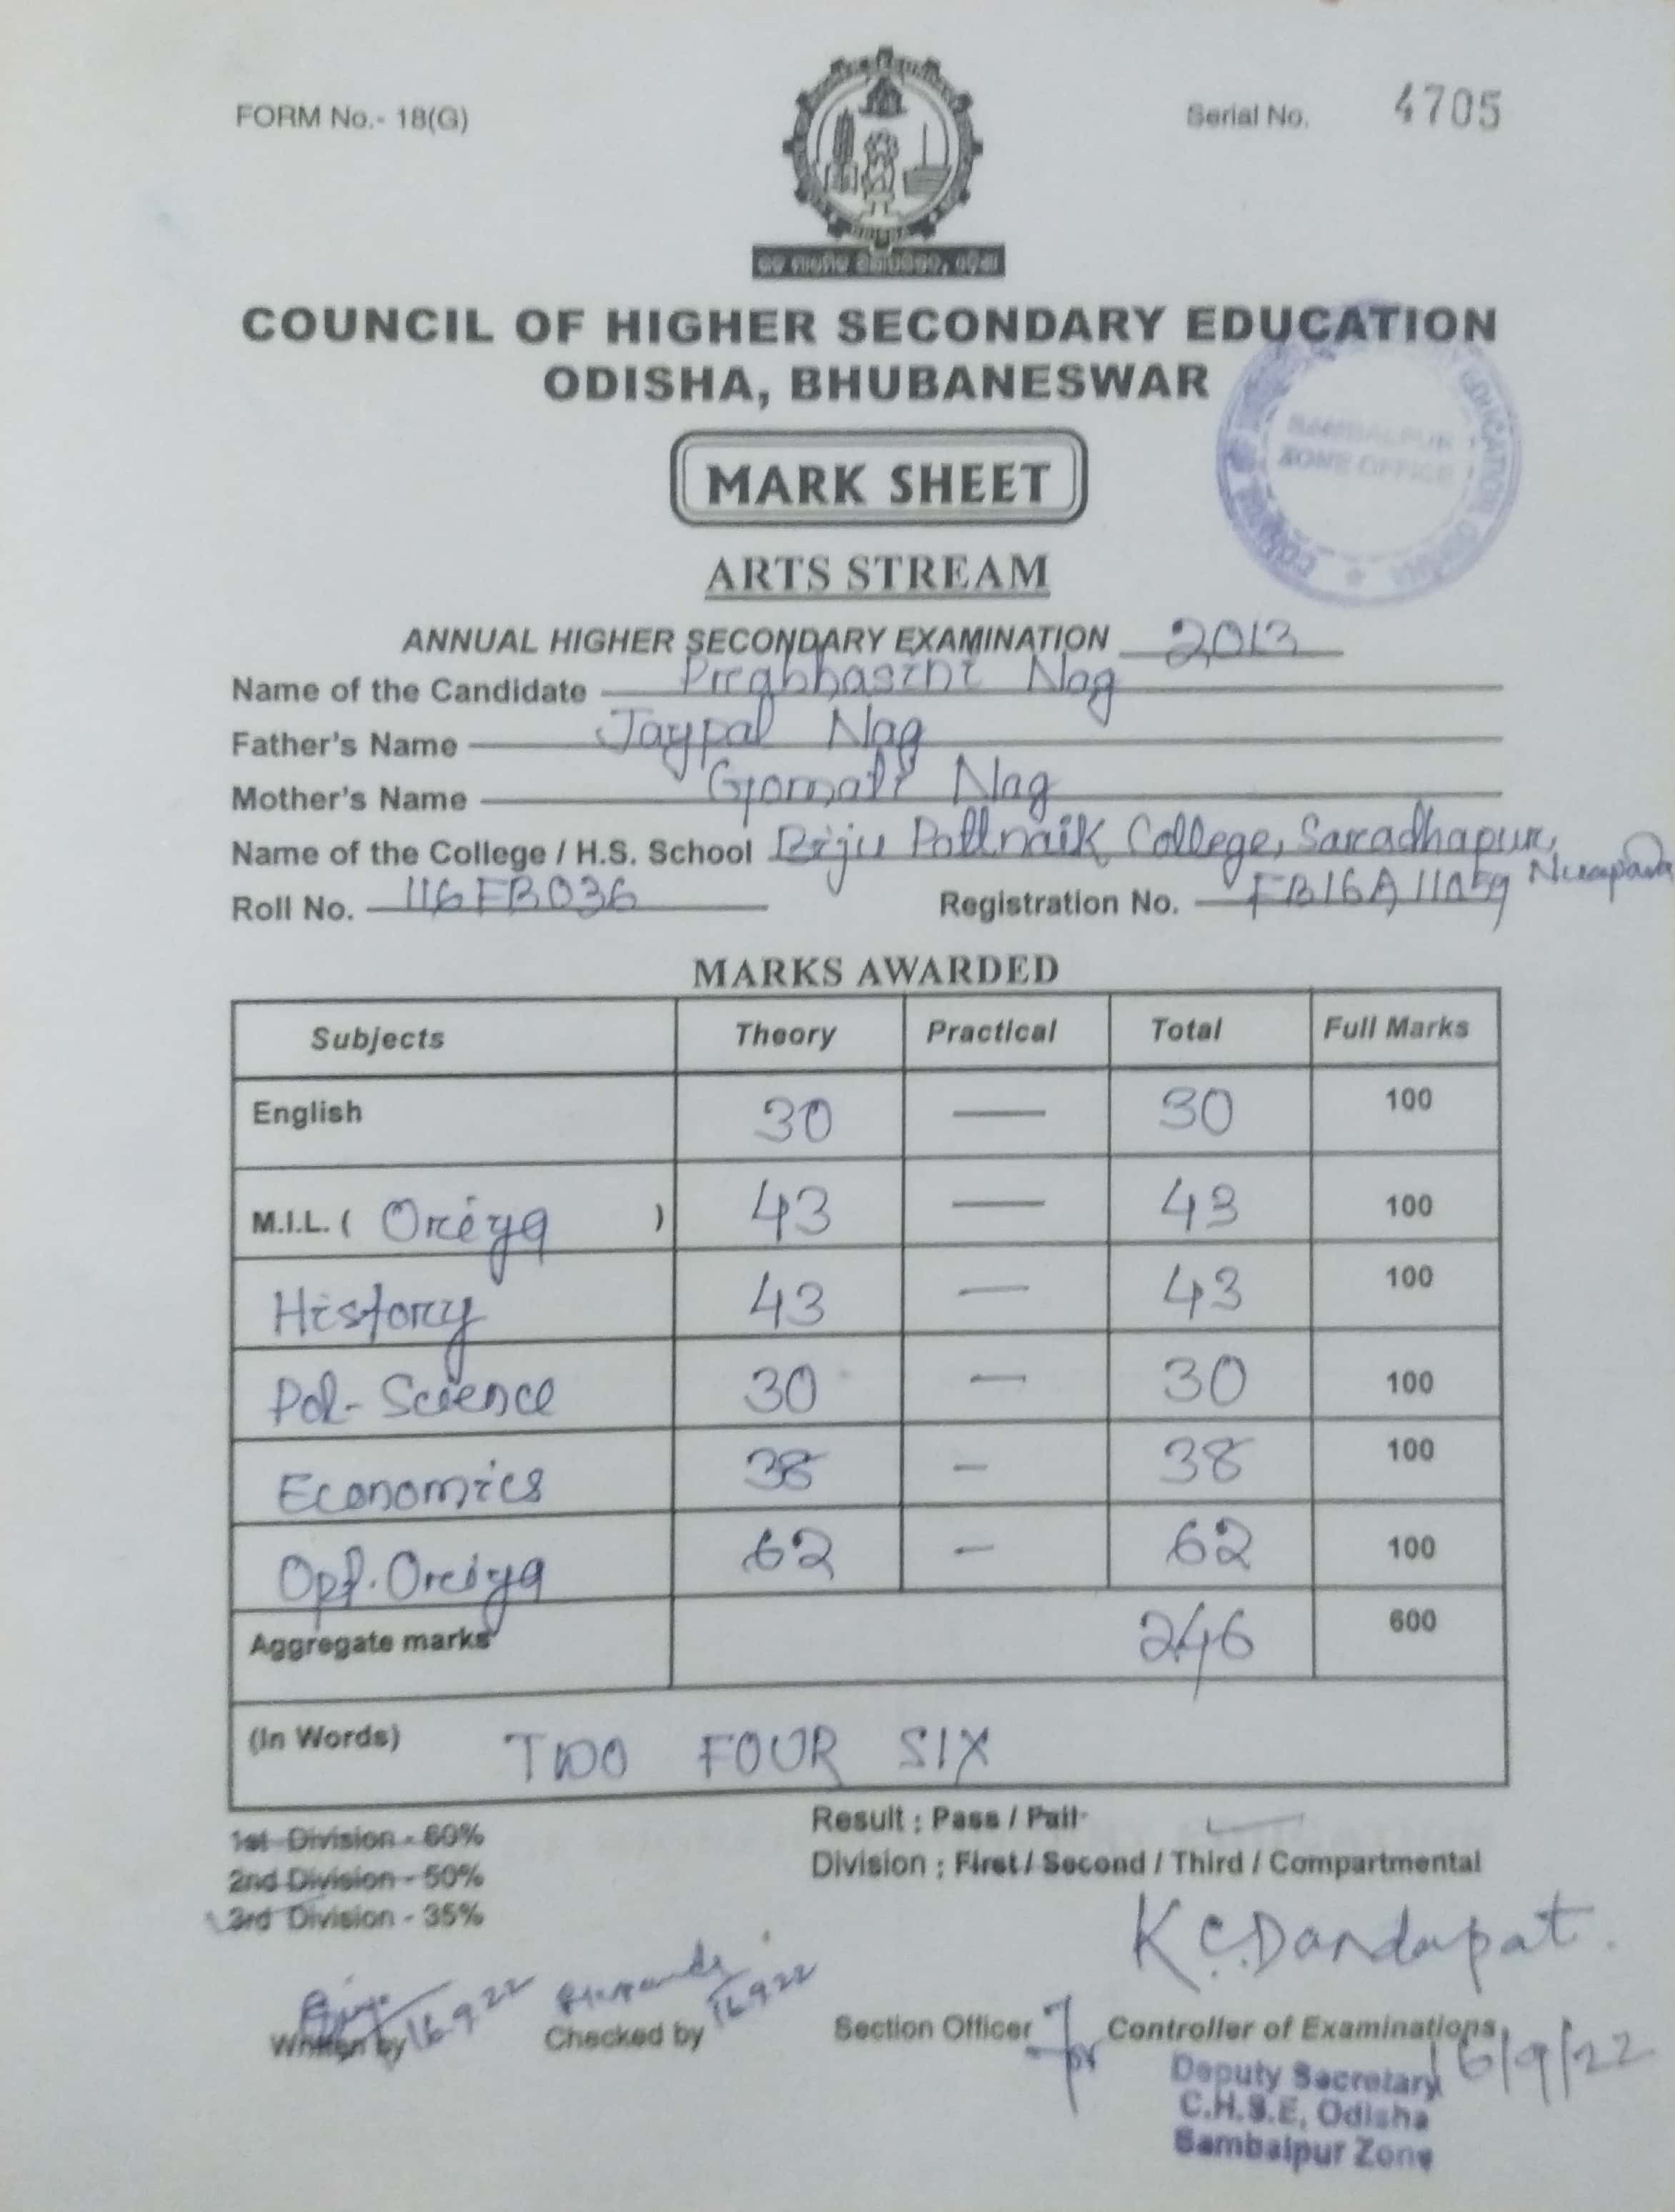 FORM No.- 18(G)
Serial No. 4705
COUNCIL OF HIGHER SECONDARY EDUCATION
ODISHA, BHUBANESWAR
SAMBALPUR
ZONE OFFICE
MARK SHEET
ARTS STREAM
ANNUAL HIGHER SECONDARY EXAMINATION 2013
Name of the Candidate Prabhasini Nag
Father's Name Jaypal Nag
Mother's Name Gomati Nag
Name of the College / H.S. School Biju Pattnaik College, Saradhapur, Nuapada
Roll No. 116FB036 Registration No. FB16A11059
MARKS AWARDED
Subjects Theory Practical Total Full Marks
English 30 — 30 100
M.I.L. ( Oriya ) 43 — 43 100
History 43 — 43 100
Pol-Science 30 — 30 100
Economics 38 – 38 100
Opt. Oriya 62 – 62 100
Aggregate marks 246 600
(In Words) TWO FOUR SIX
1st Division - 60%
2nd Division - 50%
3rd Division - 35%
Result : Pass / Fail
Division : First / Second / Third / Compartmental
K.C. Dandapat.
16.9.22
16.9.22
Written by Checked by Section Officer for Controller of Examinations
16/9/22
Deputy Secretary
C.H.S.E, Odisha
Sambalpur Zone